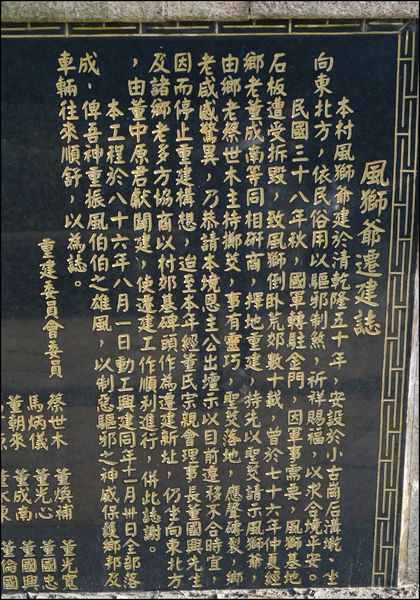 風獅爺遷建誌
本村風獅爺建於清乾隆五十年，安設於小古崗后溝墩、坐
向東北方，依民俗用以驅邪制煞，祈祥賜福，以求合境平安。
民國三十八年秋，國軍轉駐金門，因軍事需要，風獅基地
石板遭受拆毀，致風獅倒臥荒郊數十載，曾於七十六年仲夏經
鄉老董成南等同相研商，擇地重建，特先以聖筊請示風獅爺，
由鄉老蔡世木主持擲筊，事有靈巧，聖筊落地，應聲碎裂，鄉
老咸感驚異，乃恭請本境恩主公出壇示以目前遷移不合時宜，
因而停止重建構想，迨至本年經董氏宗親會理事長董國興先生
及諸鄉老多方協商以村郊基碑頭作為遷建新址，仍坐向東北方
，由董中原君獻關建，使遷建工作順利進行，併此誌謝。
本工程於八十六年八月一日動工興建同年十一月卅日全部落
成，俾吾神重振風伯伯之雄風，以制惡驅邪之神威保護鄉邦及
車輛往來順舒，以為誌。
重建委員會委員
蔡世木 董煥補 董光寬
馬炳儀 董光心 董國忠
董朝來 董成南 董國興
董倫國